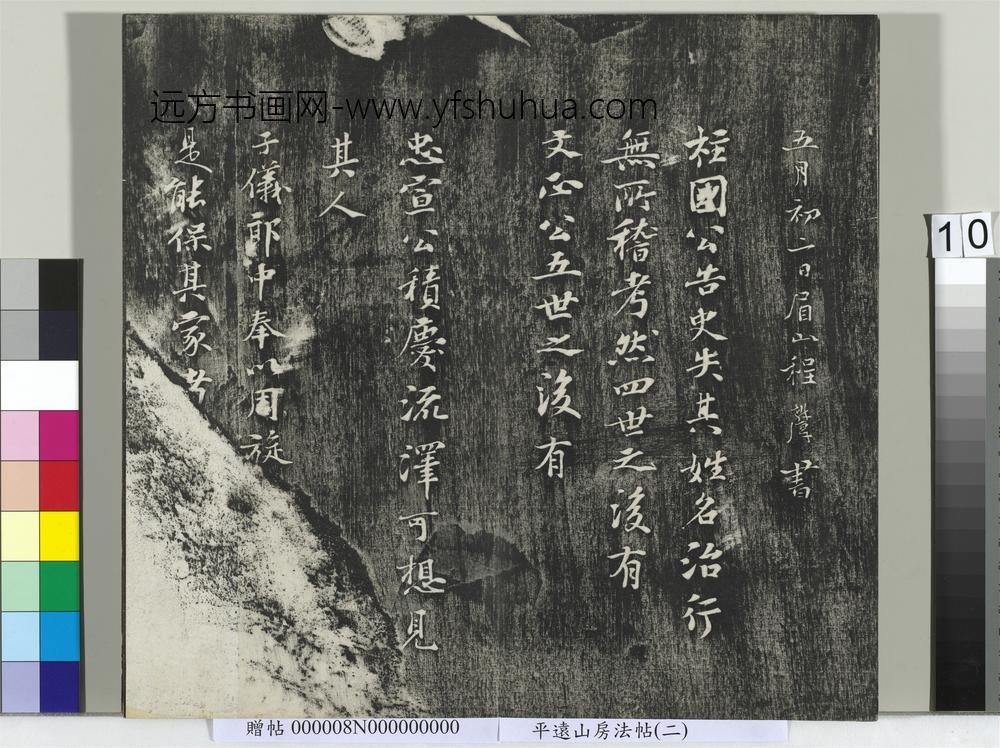 远方书画网-www.yfshuhua.com
五月初二日眉山程𡐨書
柱國公告史失其姓名治行
無所稽考然四世之後有
文正公五世之後有
忠宣公積慶流澤可想見
其人
子儀郎中奉以周旋
是能保其家者
10
贈帖 000008N000000000
平遠山房法帖(二)